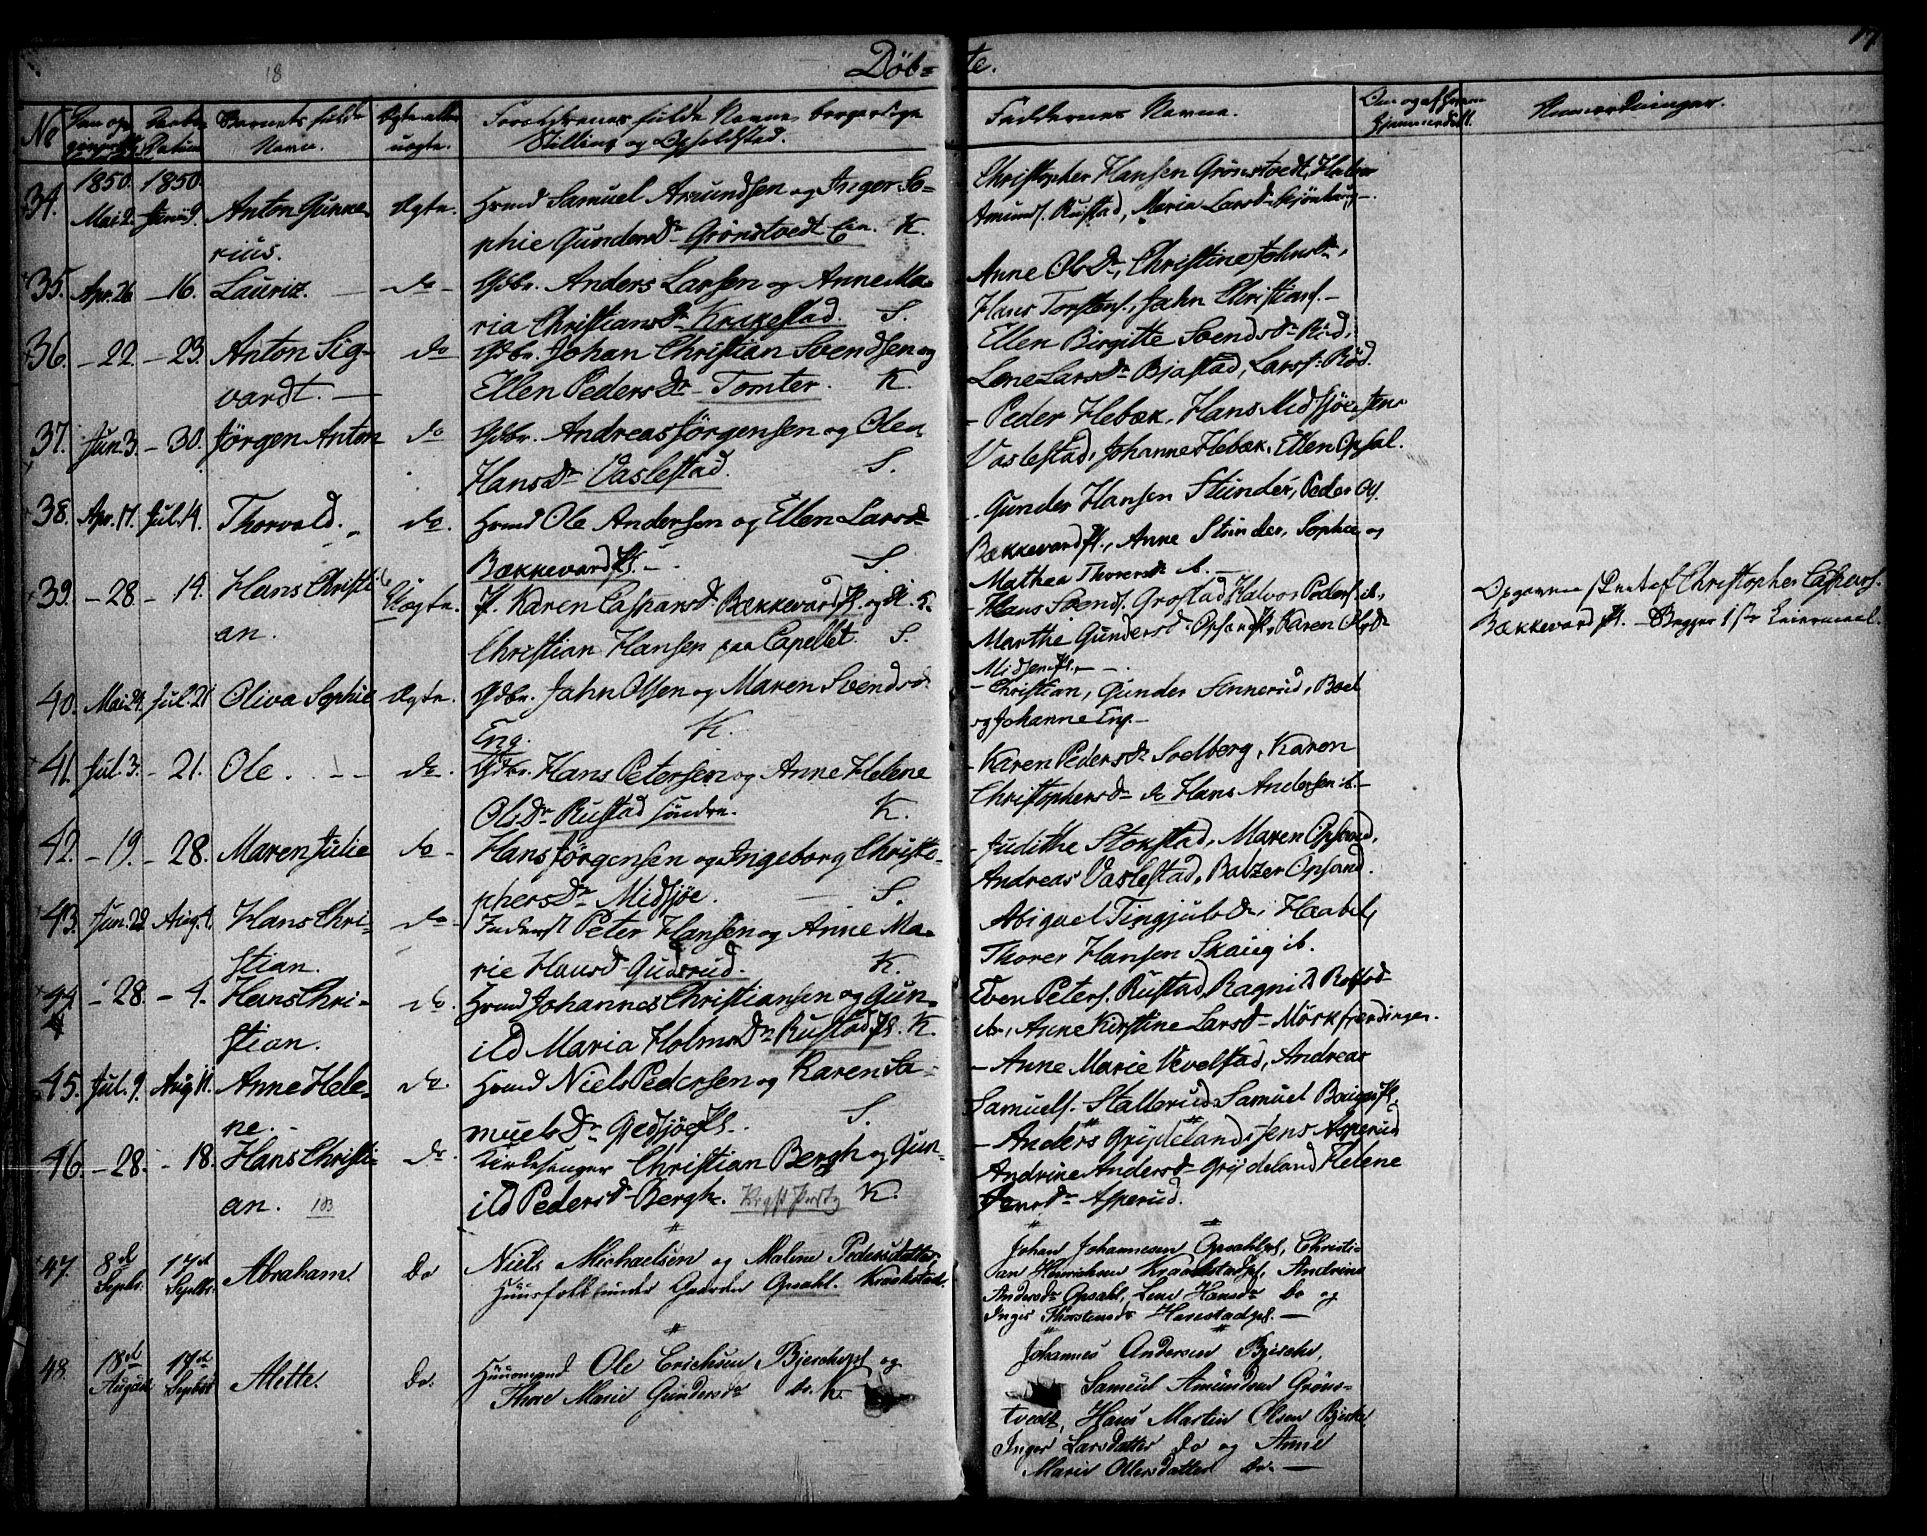 17
18
Döb= te.
No
Barnets fulde Navn.
Ægte eller uægte.
Forældrenes fulde Navne, borgerlige
Stilling og Opholdsted.
Faddernes Navne.
Anmærkninger.
1850. 1850.
34. Mai 2. Juni 9. Anton Gunne- Ægte. Hmd Samuel Amundsen og Inger So-
rius. phie Gundersdr Grönstvedt Eie. K.
Christopher Hansen Grönstvedt, Halvor
Amunds. Rustad, Maria Larsdr
35. Apr. 26 – 16. Lauriz. – do – Gdbr. Anders Larsen og Anne Ma-
ria Christiansdr Krakestad. S.
Anne Olsdr, Christine Johnsdr,
Hans Torstens., John Christians. –
36. – 22. – 23. Anton Sig- do Gdbr. Johan Christian Svendsen og
vardt. – Ellen Pedersdr Tomter. K.
Ellen Birgitte Svendsdr Rud,
Lene Larsdr Bjastad, Lars Röd.
37. Jun. 3. – 30. Jörgen Anton do Gdbr. Andreas Jörgensen og Olea
Hansdr Vaslestad. S.
– Peder Hebæk, Hans Midsjöe, Jens
Vaslestad, Johanne Hebæk, Ellen Opsal.
38. Apr. 17. Jul. 14. Thorvald. do. Hmd Ole Andersen og Ellen Larsdr
Bækkevard Pl. – S.
Gunder Hansen Stunder, Peder
Bækkevard Pl., Anne Stunder, Sophie og
Mathea Thorersdr ib. –
39. – 28. – 14. Hans Christi- Uægte. P. Karen Caspersdr Bækkevard Pl. og
an. Christian Hansen paa Capellet. S.
– Hans Svends. Grostad, Halvor Peders. ib.,
Marthe Gundersdr Opsand Pl., Karen Olsdr
Midsjöe Pl. –
Opgivne af Christopher Caspers.
Bækkevard Pl. – Begges 1ste Leiermaal.
40. Mai 24. Jul. 21 Oliva Sophie Ægte. Gdbr. John Olsen og Maren Svendsdr
Eng. K.
– Christian, Gunder Sonnerud, Boel
og Johanne Eng. –
41. Jul. 3. – 21. Ole. – – do. Gdbr. Hans Petersen og Anne Helene
Olsdr Rustad söndre. K.
– Karen Pedersdr Solberg, Karen
Christophersdr do Hans Andersen ib. –
42. – 19. – 28. Maren Julie do – Hans Jörgensen og Ingeborg Christo-
phersdr Midsjöe. S.
– Judithe Stokstad, Maren Opsand,
Andreas Vaslestad, Balzer Opsand.
43. Jun. 22 Aug. 4. Hans Chri- do – Inderst Peter Hansen og Anne Ma-
stian. rie Hansdr Gudsrud. K.
Abigael Tingjulsdr, Haabet,
Thorer Hansen Skaug ib.
44. – 28. – 4. Hans Chri- do. Hmd Johannes Christiansen og Gun-
stian. ild Maria Holmsdr Rustad Pl. K.
Even Peters. Rustad, Ragnild
do, Anne Kirstine Larsdr Mörkfærdingen.
45. Jul. 9. Aug. 11. Anne Hele- do. Hmd Niels Pedersen og Karen Sa-
ne. – muelsdr Gjedsjöe Pl. S.
– Anne Marie Vevelstad, Andreas
Samuels. Stallerud, Samuel Pl.
46. – 28. – 18. Hans Christi- do. Kirkesanger Christian Bergh og Gun-
an. 103 ild Pedersdr Bergh. K.
– Anders Gripeland, Jens Asperud
Andrine Andersdr Gripeland, Helene
Jensdr Asperud.
47. 8d Septbr. 17d Septbr. Abraham. Do Niels Michaelsen og Malene Pedersdatter
Huusfolk under Gaarden Opsahl. Kraakstad.
Johan Johannesen Opsahlpl, Christi-
an Henriksen Kraakstadpl, Andrine
Andersdr Opsahl, Lene Hansdr do og
Inger Thorstensdr Harestadpl. –
48. 18d August 17d Septbr Mette. Do. Huusmand Ole Erichsen Bjerchepl og
Thore Marie Gundersdr do. K.
Johannes Andersen Bjerche,
Samuel Amundsen Gröns-
tvedt, Hans Martin Olsen Bjerke,
Inger Larsdatter do og Anne
Marie Olersdatter do. –